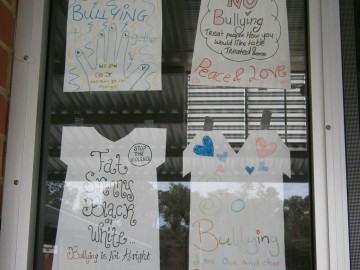 BULLYING
together
NO
Bullying
Treat people How you
would like to be
Treated
Peace & Love
STOP
THE
VIOLENCE
Fat
Skinny
Black
or
White...
Bullying is Not Alright
No
Bullying